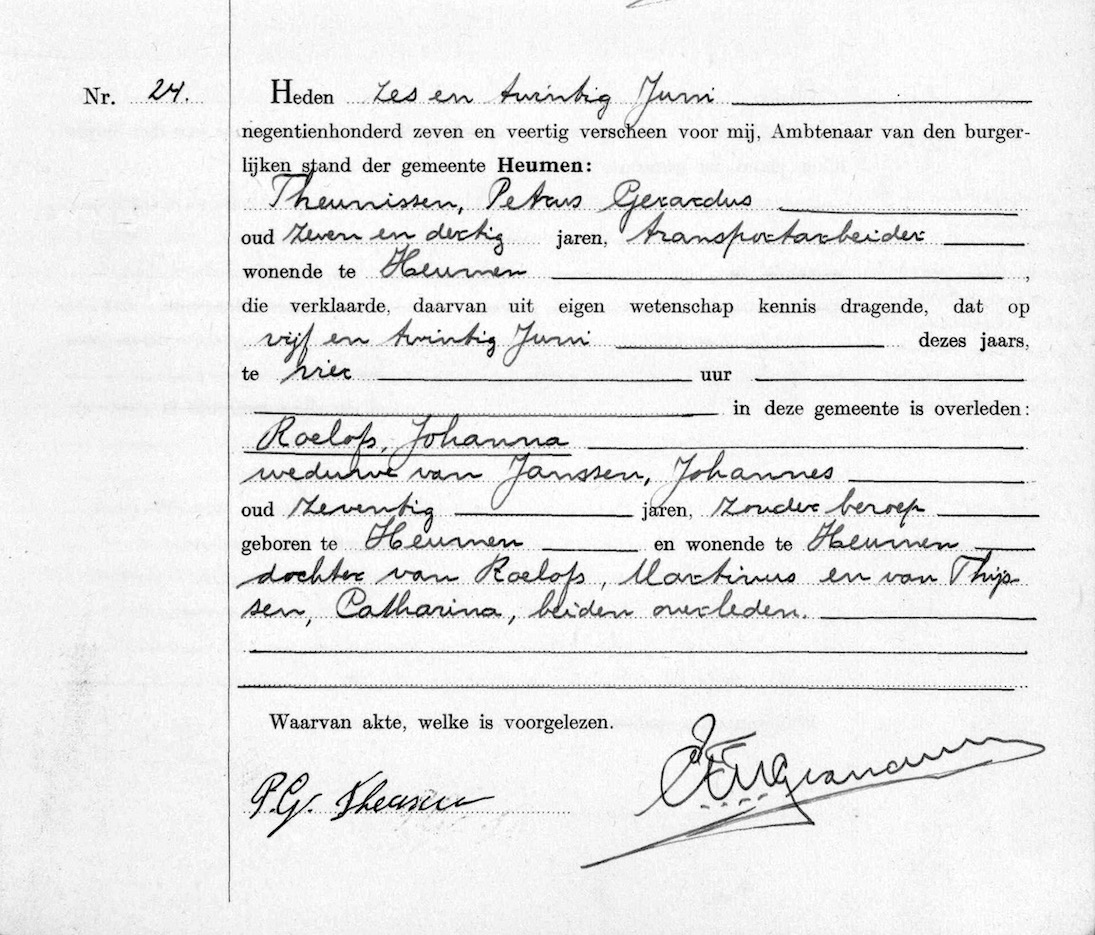 Nr. 24.
Heden zes en twintig Juni
negentienhonderd zeven en veertig verscheen voor mij, Ambtenaar van den burger-
lijken stand der gemeente Heumen:
Theunissen, Petrus Gerardus
oud zeven en dertig jaren, transportarbeider
wonende te Heumen,
die verklaarde, daarvan uit eigen wetenschap kennis dragende, dat op
vijf en twintig Juni dezes jaars,
te vier uur
in deze gemeente is overleden:
Roelofs, Johanna
weduwe van Janssen, Johannes
oud zeventig jaren, zonder beroep
geboren te Heumen en wonende te Heumen
dochter van Roelofs, Martinus en van Thijs
sen, Catharina, beiden overleden.
Waarvan akte, welke is voorgelezen.
P.G.